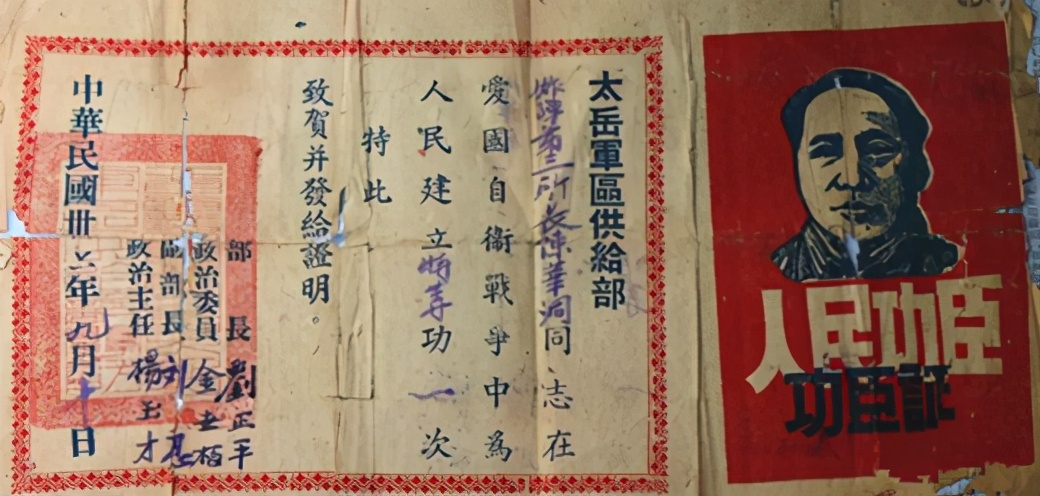 太岳軍區供給部
所長陳華洞同志在
愛國自衛戰爭中為
人民建立特等功一次
特此
致賀并發給證明。
部長 劉正平
政治委員 金
副部長 刘
政治主任 楊玉才
中華民國卅六年九月十日
人民功臣
功臣証